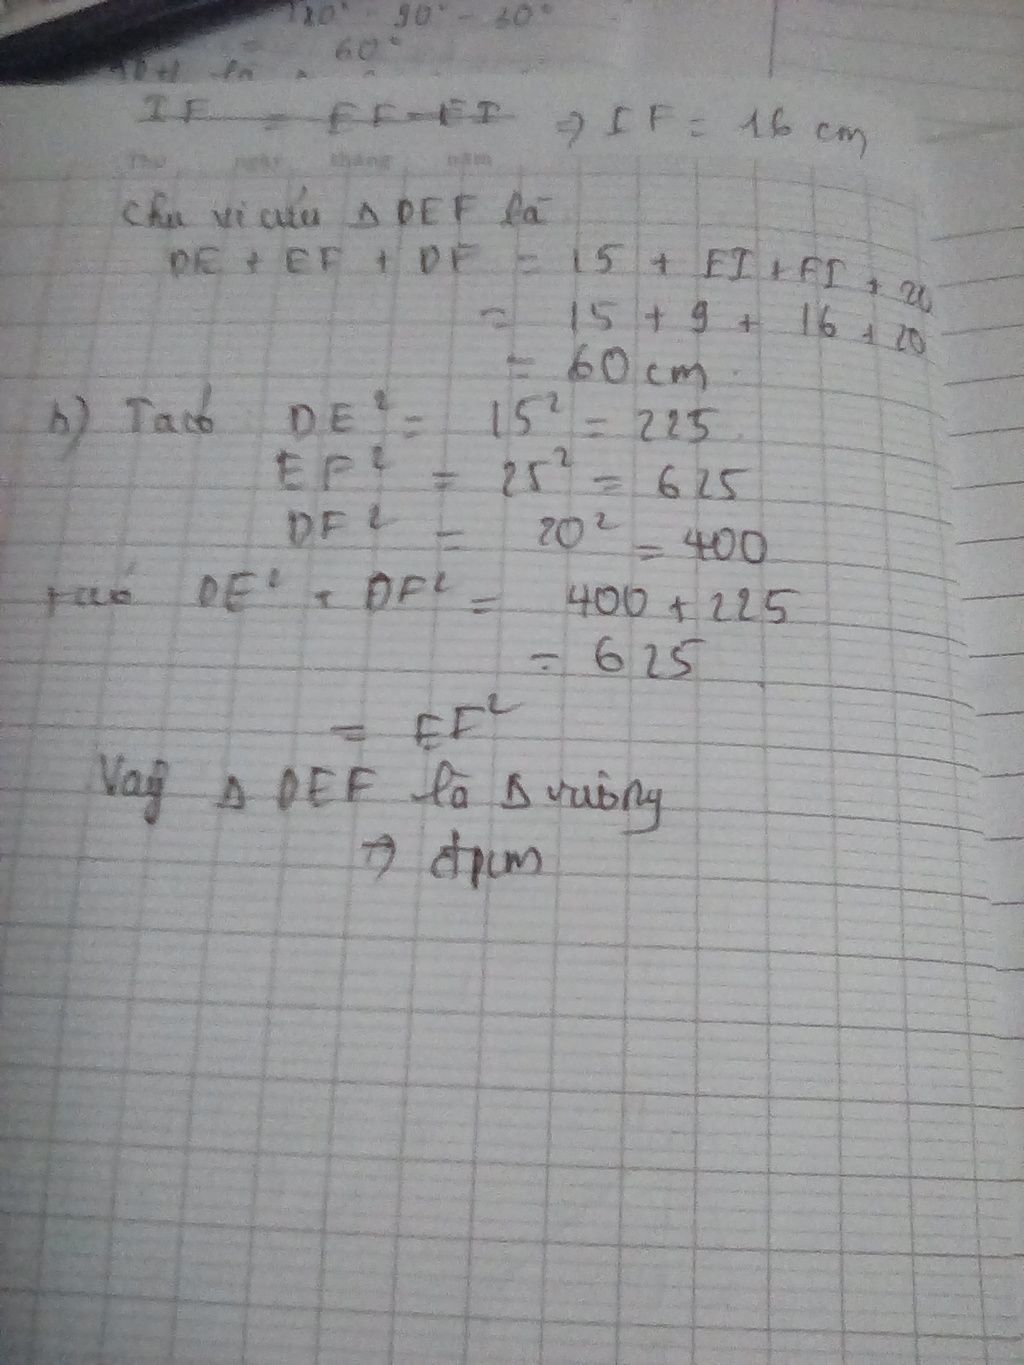 120° - 90° - 30°
= 60°
IF = EF - EI ⇒ IF = 16 cm
Thứ ngày tháng năm
Chu vi của Δ DEF là
DE + EF + DF = 15 + EI + FI + 20
= 15 + 9 + 16 + 20
= 60 cm
b) Ta có DE² = 15² = 225
EF² = 25² = 625
DF² = 20² = 400
ta có DE² + DF² = 400 + 225
= 625
= EF²
Vậy Δ DEF là Δ vuông
→ đpcm